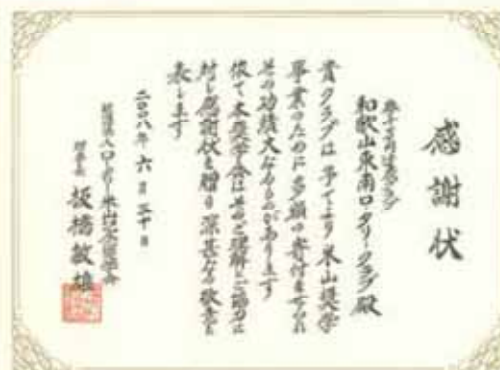 感謝状
和歌山東南ロータリークラブ殿
貴クラブは予てより米山奨学
事業のために多額の寄付をせられ
その功績大なるものがあります
依て本奨学会はそのご理解とご協力に
対し感謝状を贈り深甚なる敬意を
表します
二〇〇八年 六月三十日
理事長 板橋敏雄